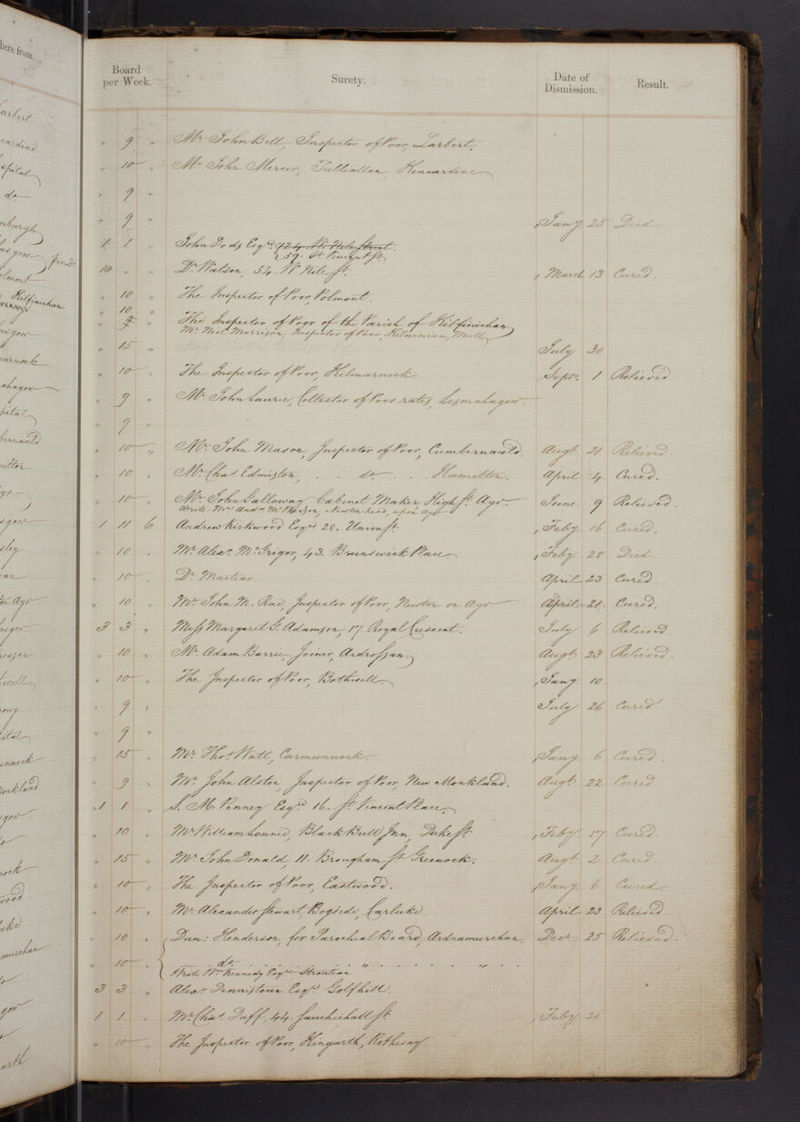 Board per Week. Surety. Date of Dismission. Result.
" 9 " Mr John Bell, Inspector of Poor, Larbert.
" 10 " Mr John Mercer, Tulliallan, Kincardine
" 9 "
" 9 " Jany 25 Died
1 1 " John Dods Esqre
159. St Vincent St.
10 " " Dr Watson, 54. W. Nile St. March 13 Cured.
" 10 " The Inspector of Poor, Polmont.
" 10 " The Inspector of Poor of the Parish of Kilfinichan
" 9 " Mr Neil Morrison, Inspector of Poor, Kilninian, Mull
" 15 " July 30
" 10 " The Inspector of Poor, Kilmarnock Sepr. 1 Relieved
" 9 " Mr John Laurie, Collector of Poor rates, Lesmahagow.
" 9 "
" 10 " Mr. John Mason, Inspector of Poor, Cumbernauld. Augt 21 Relieved.
" 10 " Mr Chas Edmiston, . . do . . Hamilton. April 4 Cured.
" 10 " Mr John Galloway Cabinet Maker High St. Ayr. June 9 Relieved.
Write Mr Andw Newton head, upon Ayr
1 11 6 Andrew Kirkwood Esqre 28. Union St. Feby 16 Cured.
" 10 " Mr Alexr McGrigor, 43. Brunswick Place Feby 28 Died
" 10 " Dr April 23 Cured
" 10 " Mr John M. Rae, Inspector of Poor, Newton on Ayr April 21. Cured.
3 3 " Miss Margaret G. Adamson, 17. Royal Crescent. July 6 Relieved
" 10 " Mr Adam Barrie, Joiner, Ardrossan Augt 23 Relieved.
" 10 " The Inspector of Poor, Bothwell Jany 10
" 9 " July 26 Cured.
" 9 "
" 15 " Mr. Thos Watt, Carmunnock. Jany 6 Cured.
" 9 " Mr John Alston Inspector of Poor, New Monkland. Augt 22 Cured
1 1 " S. M. Penney Esqre 16. St Vincent Place
" 10 " Mr William Black Bull Inn, Duke St Feby. 17 Cured.
" 15 " Mr John Donald, 11. Brougham St Greenock. Augt 2 Cured.
" 10 " The Inspector of Poor, Eastwood. Jany 6 Cured
" 10 " Mr Alexander Stewart, Bogside, Carluke April 23 Relieved.
" 10 " Dun: Henderson, for Parochial Board, Ardnamurchan. Decr 25 Relieved.
" 10 " do " "
Write Wm Kennedy Esqre Strontian
3 3 " Alexr Dennistoun Esqre Golfhill
1 1 " Mr Chas Duff, 44. Sauchiehall St Feby 26
" 10 " The Inspector of Poor, Kingarth, Rothesay.